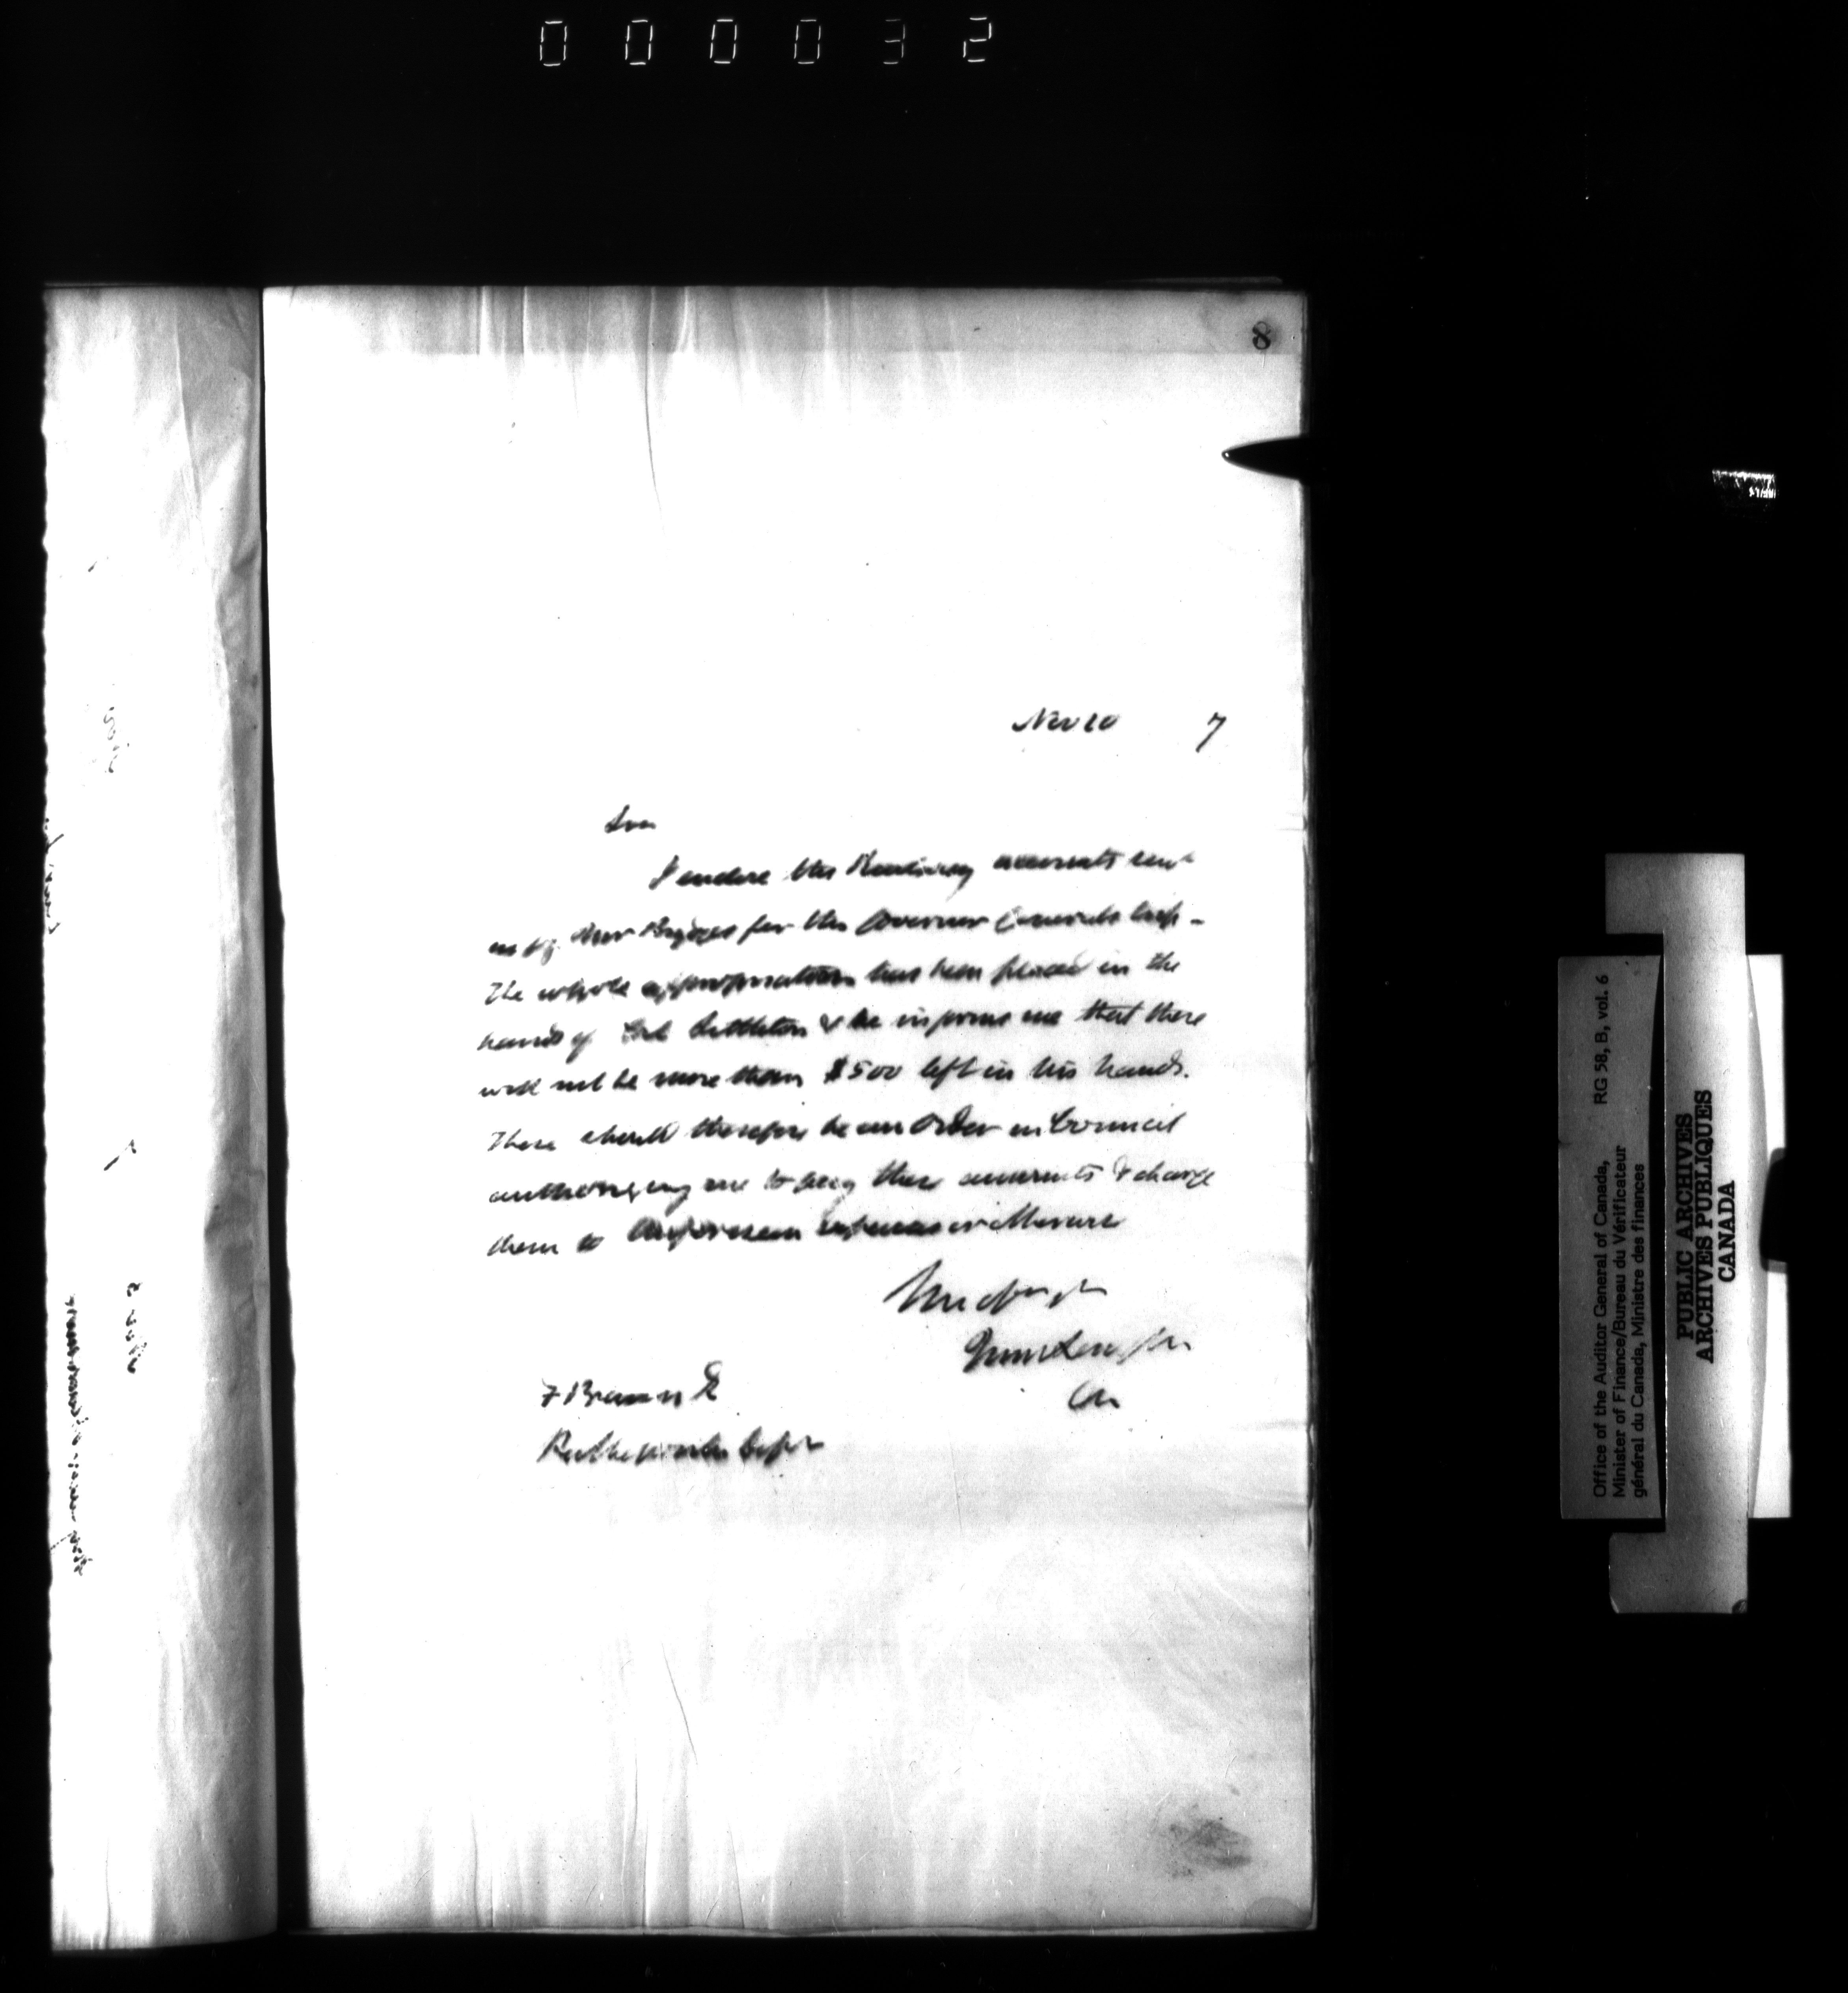 000032
8
Nov 10 7
Sir
I enclose the Railway accounts sent
in by Mr Brydges for the Governor Generals trip -
The whole appropriation has been placed in the
hands of Col Littleton & he informs me that there
will not be more than $500 left in his hands.
There should therefore be an Order in Council
authorizing me to pay these accounts & charge
them to Unforeseen expenses
F Braun E
Public Works Dept
Office of the Auditor General of Canada, RG 58, B, vol. 6
Minister of Finance/Bureau du Vérificateur
général du Canada, Ministre des finances
PUBLIC ARCHIVES
ARCHIVES PUBLIQUES
CANADA